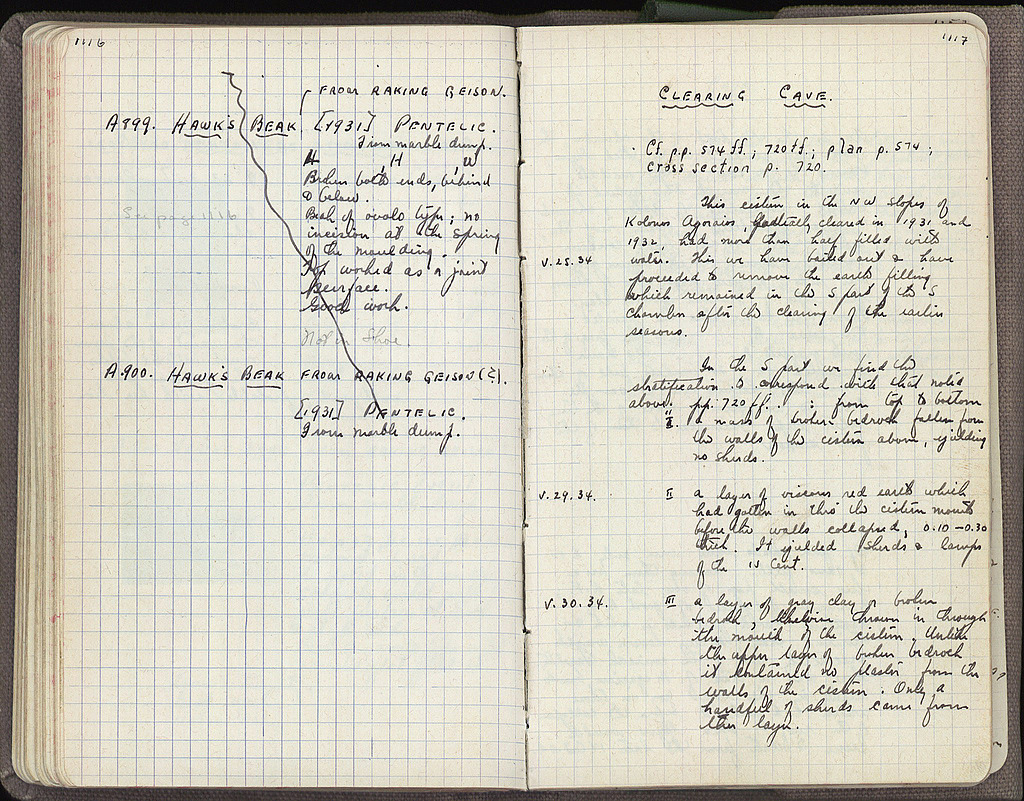 1116
FROM RAKING GEISON.
A 899. HAWK'S BEAK [1931] PENTELIC.
From marble dump.
H , H , W
Broken both ends, behind
& below.
See page 1116
Beak of ovolo type; no
incision at the spring
of the moulding.
Top worked as a joint
surface.
Good work.
Not in Shoe.
A.900. HAWK'S BEAK FROM RAKING GEISON(?).
[1931] PENTELIC.
From marble dump.
1117
CLEARING CAVE.
Cf. p.p. 574 ff.; 720 ff.; plan p. 574;
cross section p. 720.
This cistern in the NW slopes of
Kolonos Agoraios, partially cleared in 1931 and
1932, had more than half filled with
V.25.34 water. This we have bailed out & have
proceeded to remove the earth filling
which remained in the S part of the S
chamber after the clearing of the earlier
seasons.
In the S part we find the
stratification to correspond with that noted
above pp. 720 ff. : from top to bottom
I. a mass of broken bedrock fallen from
the walls of the cistern above, yielding
no sherds.
V.29.34. II a layer of viscous red earth which
had gotten in thro' the cistern mouth
before the walls collapsed, 0.10-0.30
thick. It yielded sherds & lamps
of the cent.
V.30.34. III a layer of gray clay or broken
bedrock, likewise thrown in through
the mouth of the cistern. Unlike
the upper layer of broken bedrock
it contained no plaster from the
walls of the cistern. Only a
handful of sherds came from
this layer.